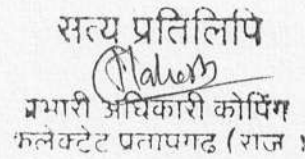 सत्य प्रतिलिपि
Mahesh
प्रभारी अधिकारी कोपिंग
कलेक्टेट प्रतापगढ (राज